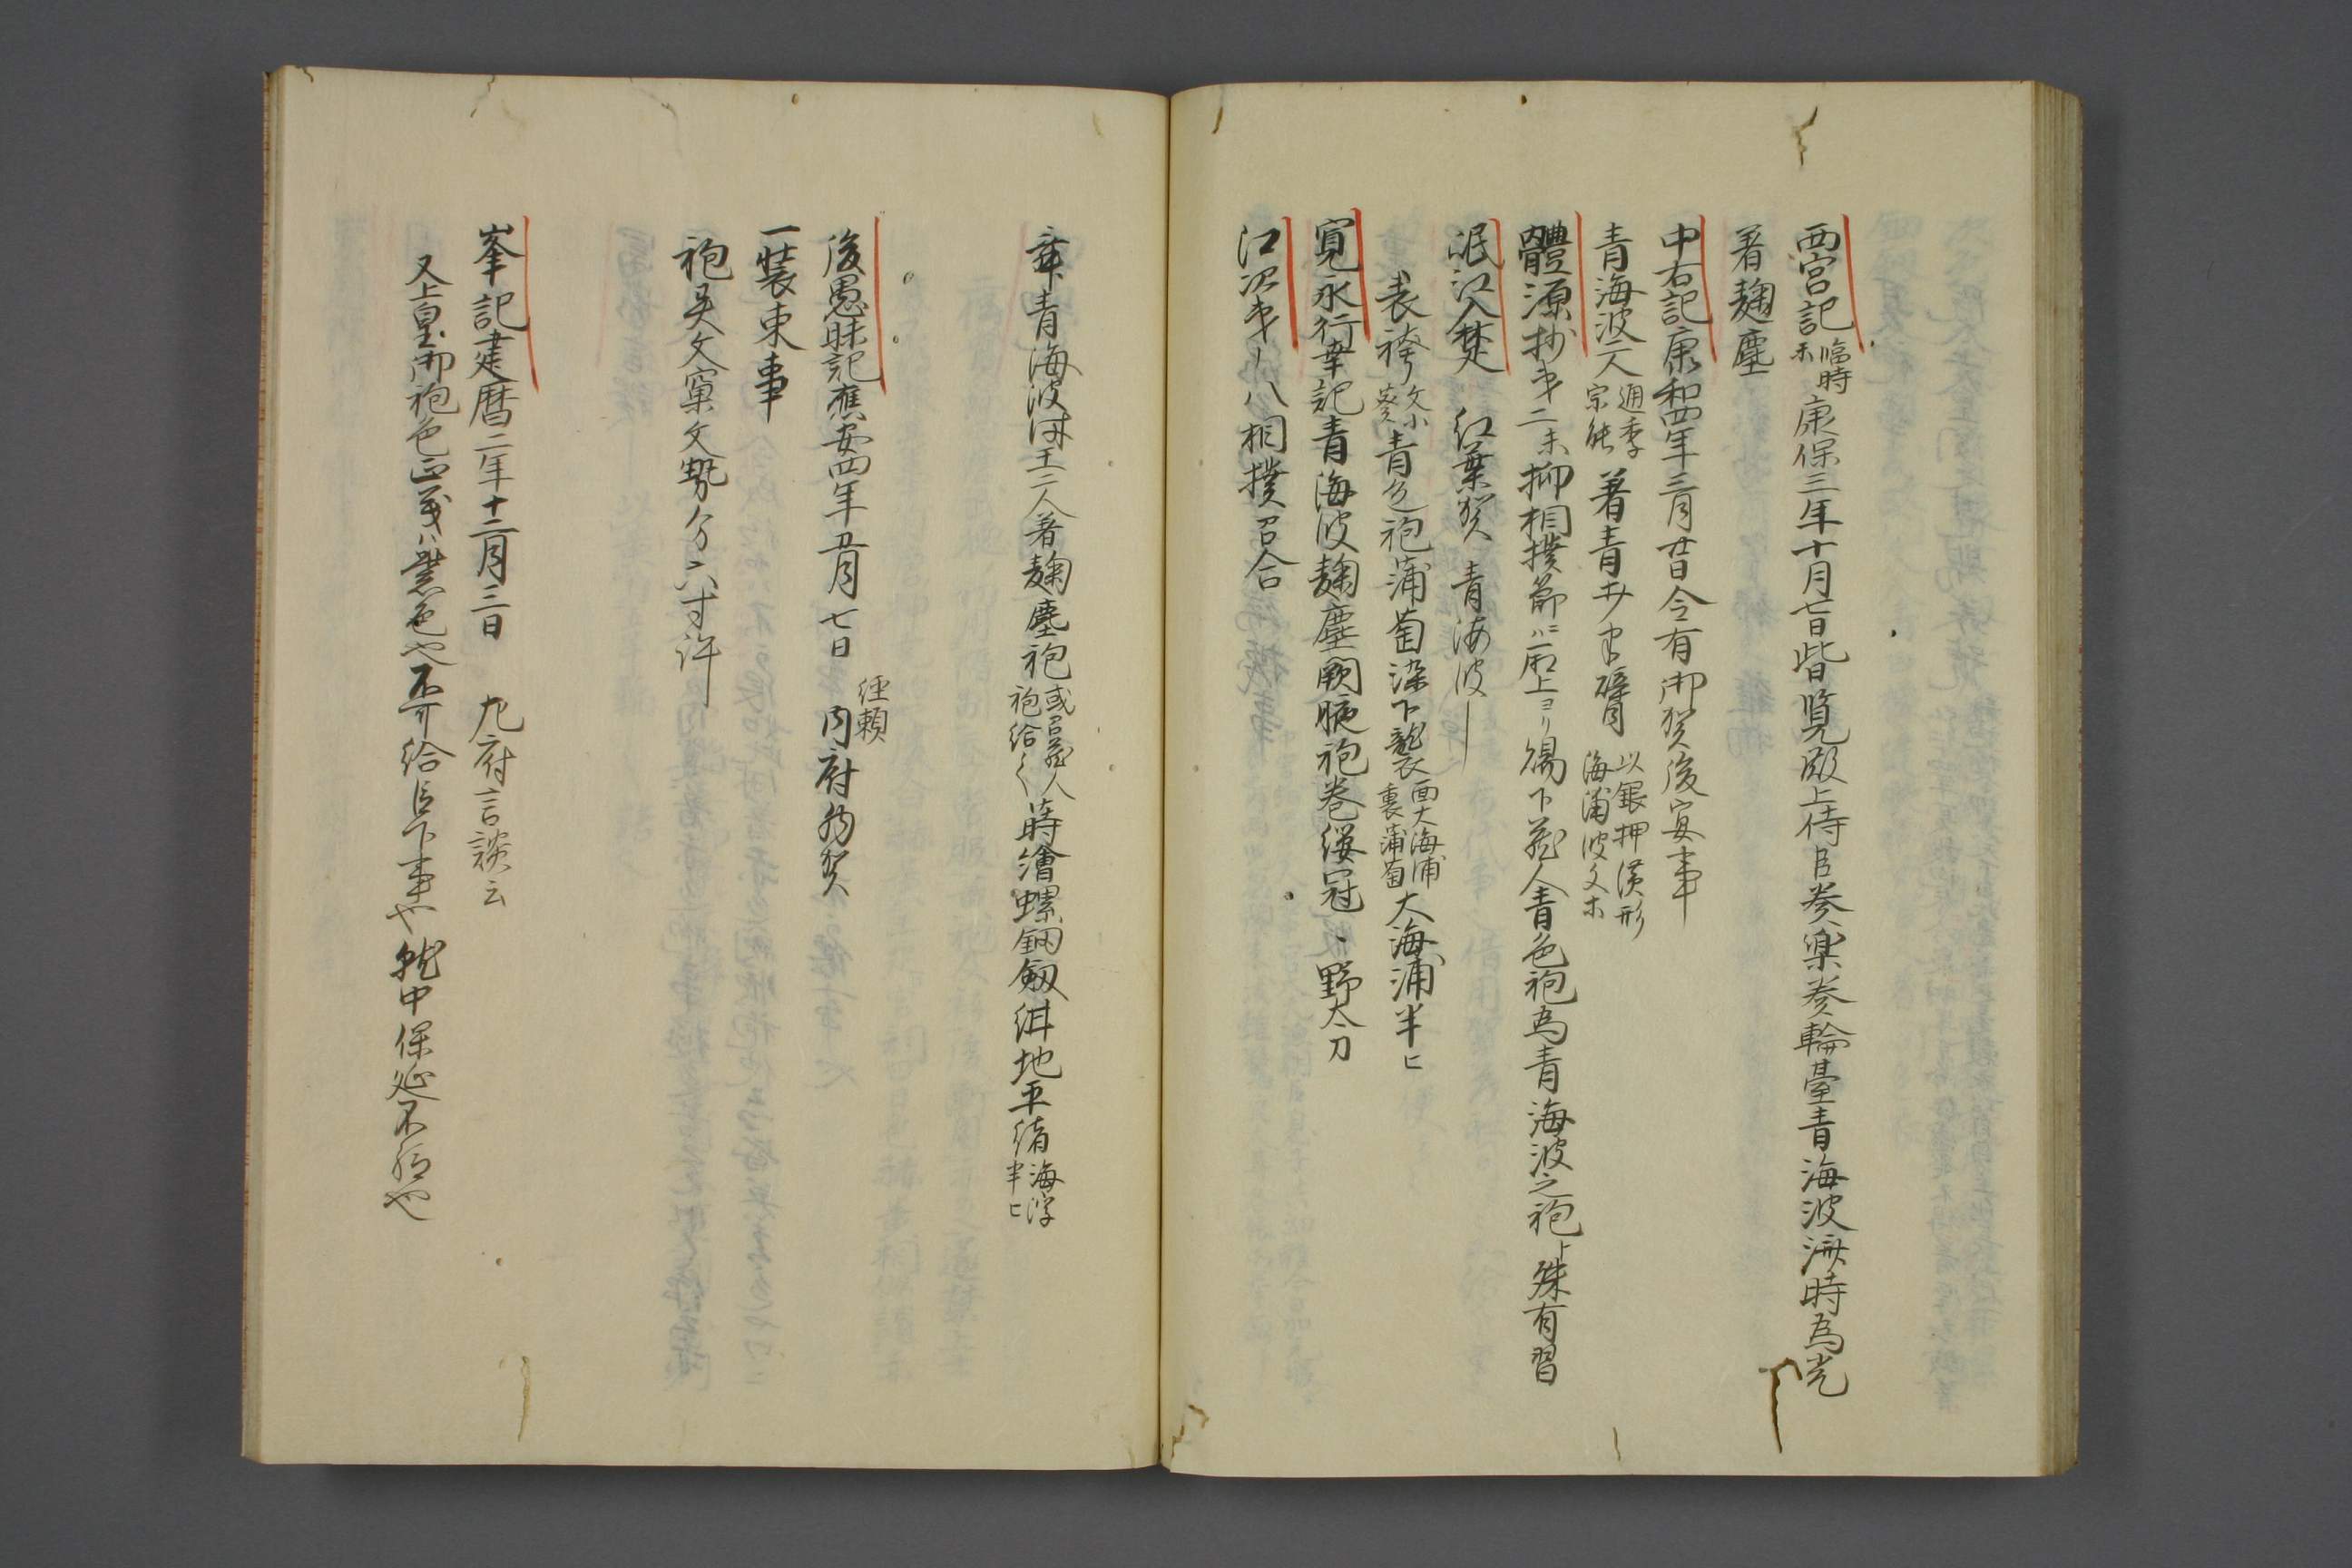 西宮記臨時 康保三年十月七日皆覧殿上侍臣奏楽奏輪臺青海波時為光
着麹塵
中右記康和四年三月廿日今有御賀後宴事
青海波二人通季宗能 着青 半臂以銀押濱形海浦波文
體源抄第二末抑相撲節ニハ上ヨリ賜下蔵人青色袍為青海波之袍ト殊有習
岷江入楚 紅葉賀 青海波
表袴文小葵 青色袍蒲萄染下襲面大海浦裏蒲萄 大海浦半ヒ
寛永行幸記青海波麹塵闕腋袍巻纓冠、野太刀
江次第八相撲召合
舞青海波 王二人着麹塵袍或召蔵人袍給之 蒔繪螺鈿劔紺地平緒海浮半ヒ
後愚昧記應安四年 月七日 経頼 内府為賀
一装束事
袍異文窠文勢分六寸許
峯記建暦二年十二月三日 九府言談云
又上皇御袍色正義ハ黒色也不可給臣下事也就中保延不給也